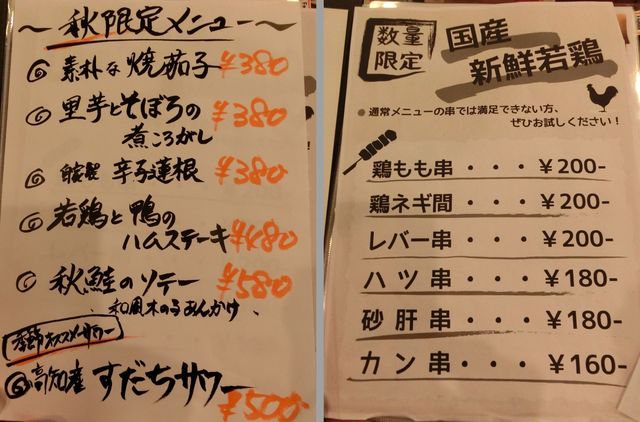 〜秋限定メニュー〜
素朴な焼茄子 ¥380
里芋とそぼろの ¥380
煮ころがし
自家製 辛子蓮根 ¥380
若鶏と鴨の
ハムステーキ ¥480
秋鮭のソテー ¥580
和風木の子あんかけ
季節オススメサワー
高知産 すだちサワー ¥500
数量
限定
国産
新鮮若鶏
●通常メニューの串では満足できない方、
ぜひお試しください!
鶏もも串・・・¥200-
鶏ネギ間・・・¥200-
レバー串・・・¥200-
ハツ串・・・¥180-
砂肝串・・・¥180-
カン串・・・¥160-